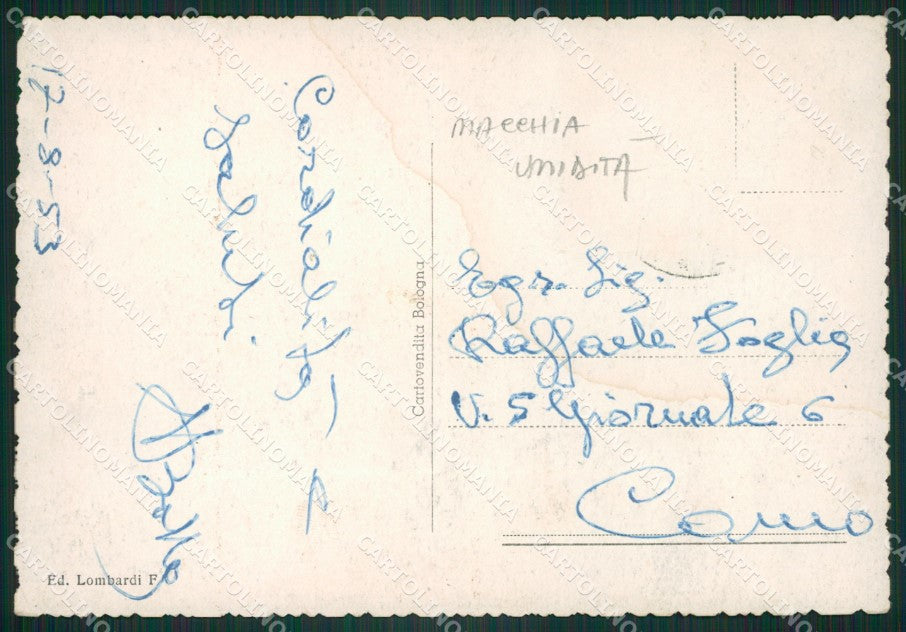 12-8-53
Cordialità e
saluti
MACCHIA
UMIDITA
Cartovendita Bologna
Egr. Sig.
Raffaele Foglia
V. 5 Giornate 6
Como
Ed. Lombardi F
CARTOLINOMANIA